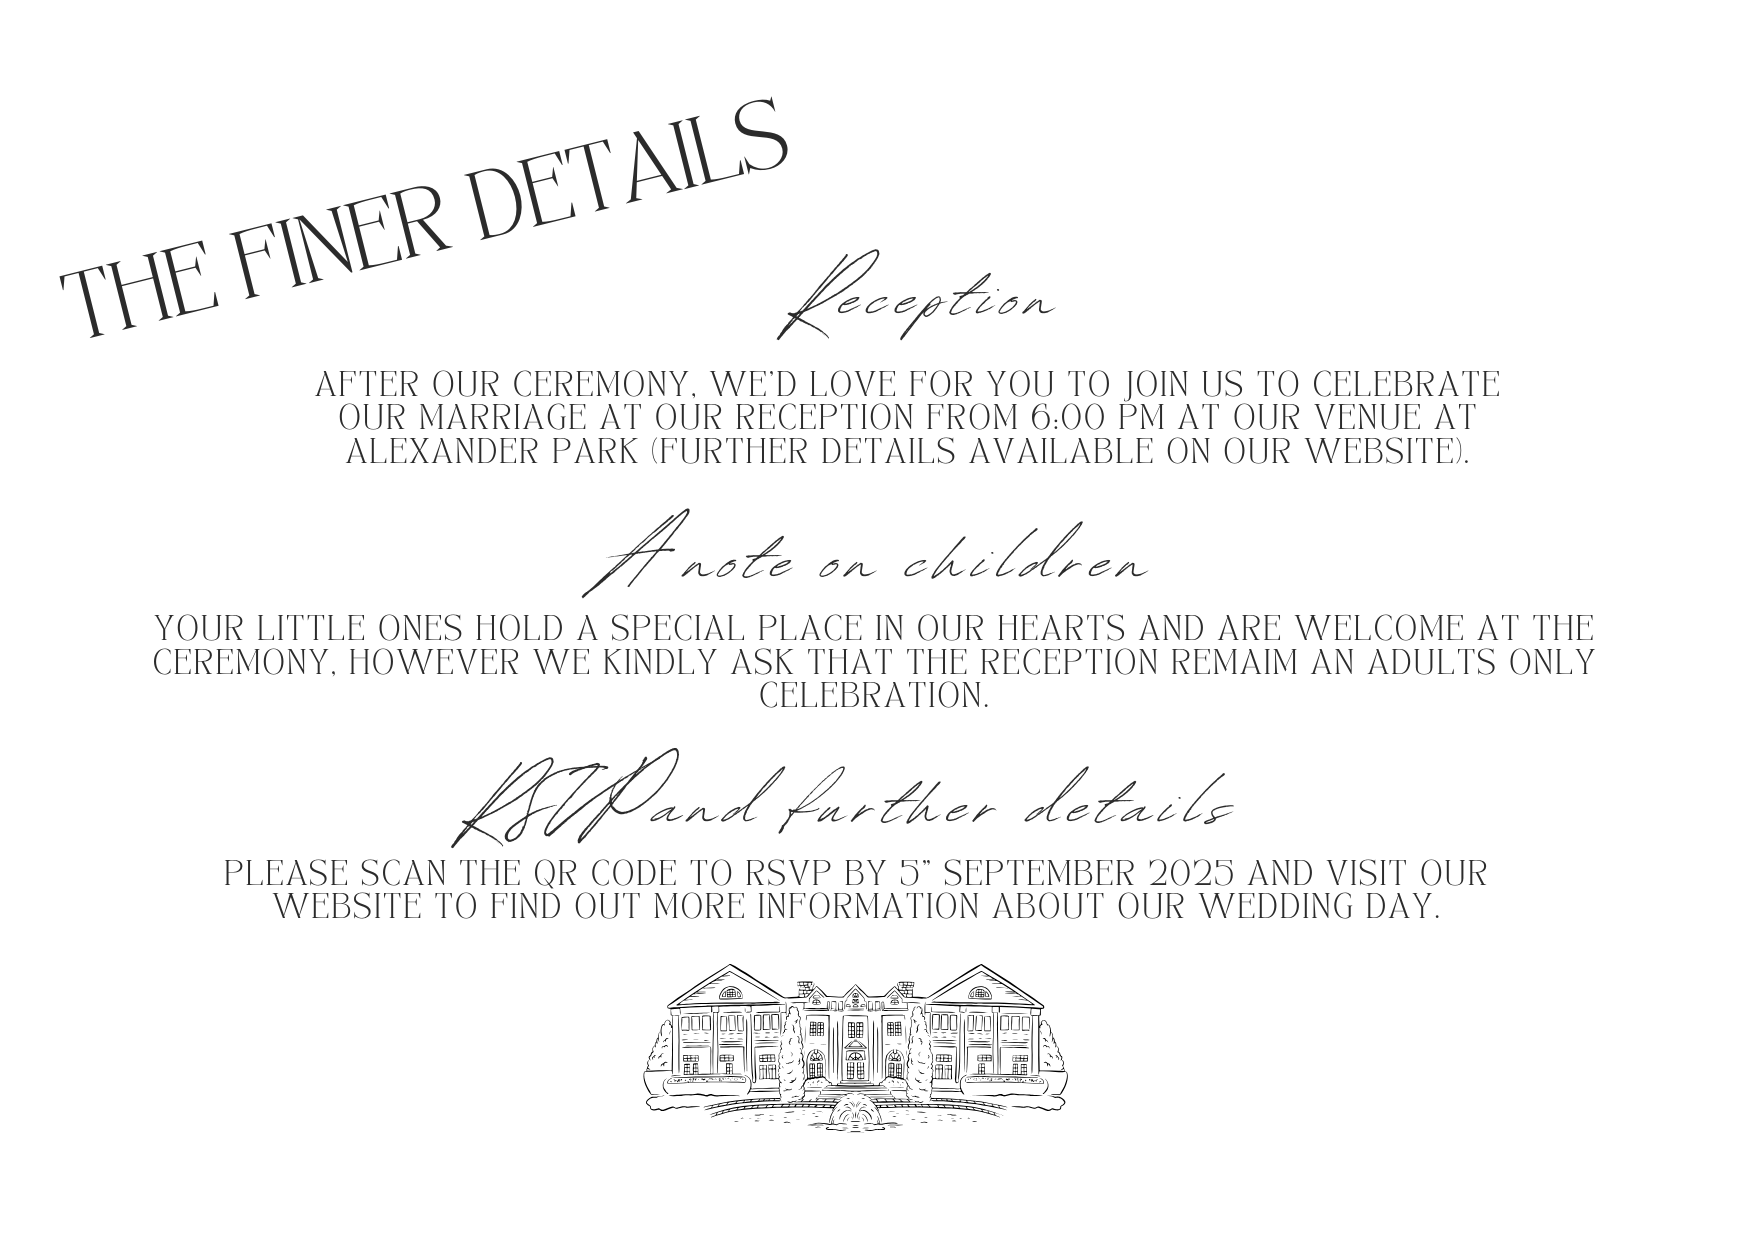 THE FINER DETAILS
Reception
AFTER OUR CEREMONY, WE'D LOVE FOR YOU TO JOIN US TO CELEBRATE
OUR MARRIAGE AT OUR RECEPTION FROM 6:00 PM AT OUR VENUE AT
ALEXANDER PARK (FURTHER DETAILS AVAILABLE ON OUR WEBSITE).
A note on children
YOUR LITTLE ONES HOLD A SPECIAL PLACE IN OUR HEARTS AND ARE WELCOME AT THE
CEREMONY, HOWEVER WE KINDLY ASK THAT THE RECEPTION REMAIM AN ADULTS ONLY
CELEBRATION.
RSVP and further details
PLEASE SCAN THE QR CODE TO RSVP BY 5” SEPTEMBER 2025 AND VISIT OUR
WEBSITE TO FIND OUT MORE INFORMATION ABOUT OUR WEDDING DAY.